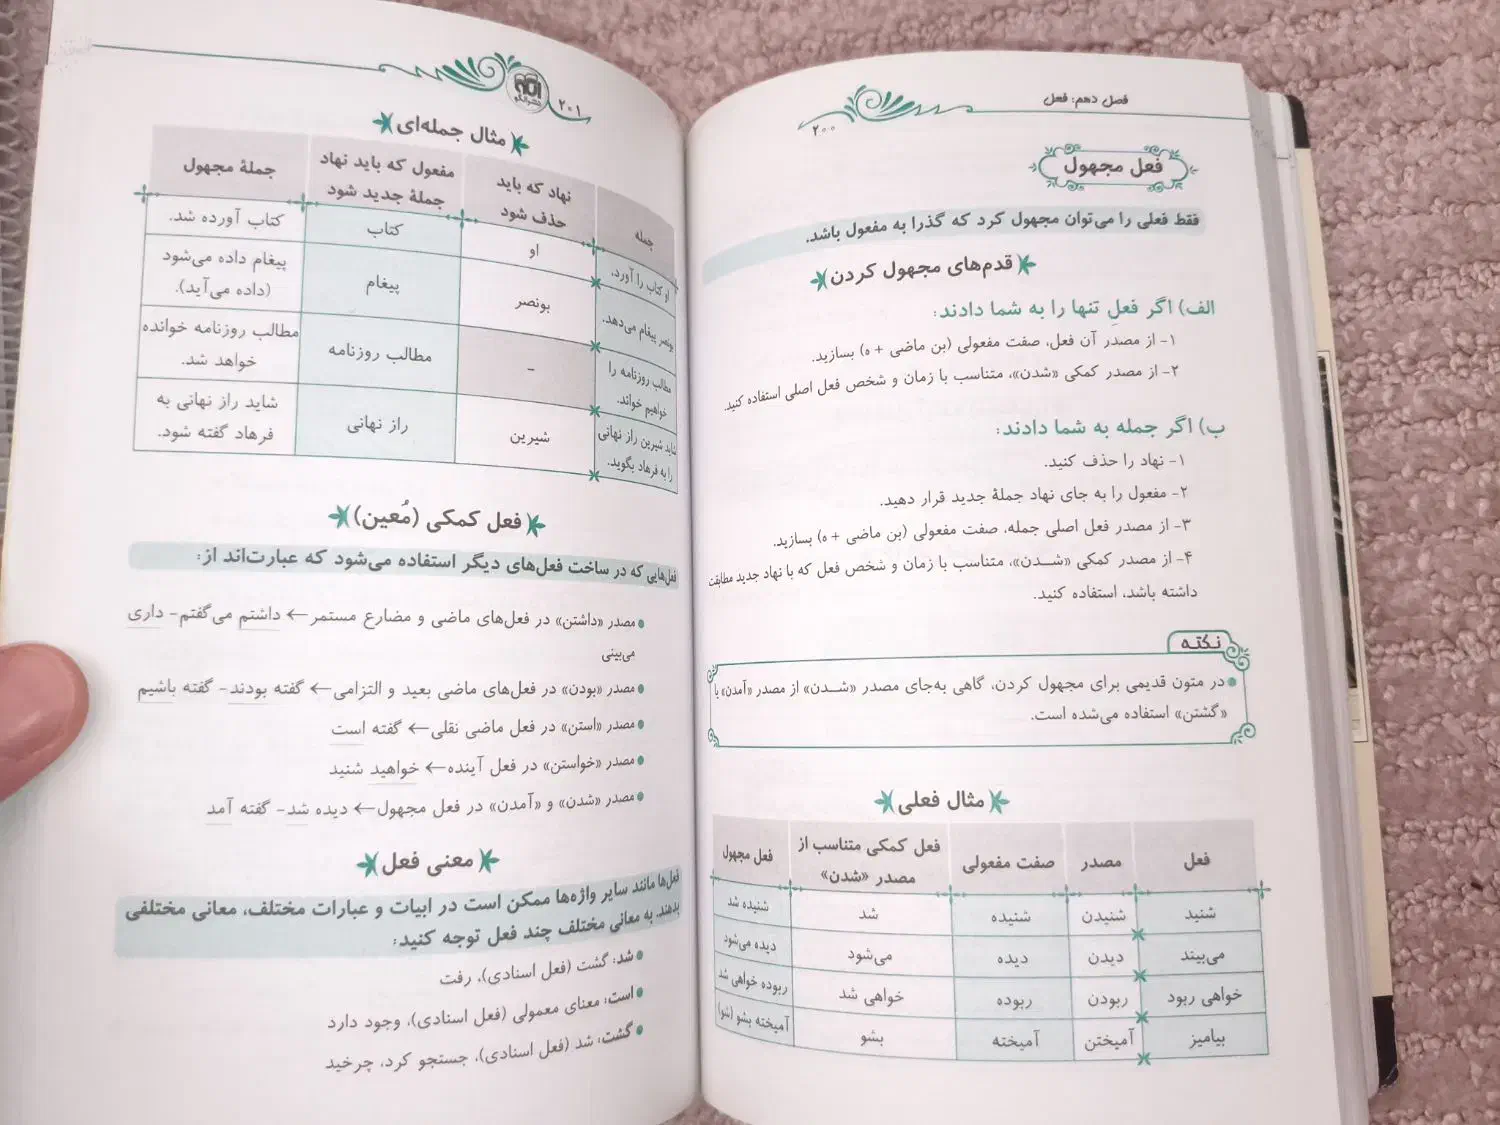 فصل دهم: فعل
۲۰۰
فعل مجهول
فقط فعلی را می‌توان مجهول کرد که گذرا به مفعول باشد.
قدم‌های مجهول کردن
الف) اگر فعلِ تنها را به شما دادند:
۱- از مصدر آن فعل، صفت مفعولی (بن ماضی + ه) بسازید.
۲- از مصدر کمکی «شدن»، متناسب با زمان و شخص فعل اصلی استفاده کنید.
ب) اگر جمله به شما دادند:
۱- نهاد را حذف کنید.
۲- مفعول را به جای نهاد جملهٔ جدید قرار دهید.
۳- از مصدر فعل اصلی جمله، صفت مفعولی (بن ماضی + ه) بسازید.
۴- از مصدر کمکی «شدن»، متناسب با زمان و شخص فعل که با نهاد جدید مطابقت
داشته باشد، استفاده کنید.
نکته
در متون قدیمی برای مجهول کردن، گاهی به‌جای مصدر «شدن» از مصدر «آمدن» یا
«گشتن» استفاده می‌شده است.
مثال فعلی
فعل | مصدر | صفت مفعولی | فعل کمکی متناسب از مصدر «شدن» | فعل مجهول
شنید | شنیدن | شنیده | شد | شنیده شد
می‌بیند | دیدن | دیده | می‌شود | دیده می‌شود
خواهی ربود | ربودن | ربوده | خواهی شد | ربوده خواهی شد
بیامیز | آمیختن | آمیخته | بشو | آمیخته بشو (شو)
۲۰۱
نشر الگو
مثال جمله‌ای
جمله | نهاد که باید حذف شود | مفعول که باید نهاد جملهٔ جدید شود | جملهٔ مجهول
او کتاب را آورد. | او | کتاب | کتاب آورده شد.
بونصر پیغام می‌دهد. | بونصر | پیغام | پیغام داده می‌شود (داده می‌آید).
مطالب روزنامه را خواهیم خواند. | - | مطالب روزنامه | مطالب روزنامه خوانده خواهد شد.
شاید شیرین راز نهانی را به فرهاد بگوید. | شیرین | راز نهانی | شاید راز نهانی به فرهاد گفته شود.
فعل کمکی (مُعین)
فعل‌هایی که در ساخت فعل‌های دیگر استفاده می‌شود که عبارت‌اند از:
مصدر «داشتن» در فعل‌های ماضی و مضارع مستمر ← داشتم می‌گفتم- داری
می‌بینی
مصدر «بودن» در فعل‌های ماضی بعید و التزامی ← گفته بودند- گفته باشیم
مصدر «استن» در فعل ماضی نقلی ← گفته است
مصدر «خواستن» در فعل آینده ← خواهید شنید
مصدر «شدن» و «آمدن» در فعل مجهول ← دیده شد- گفته آمد
معنی فعل
فعل‌ها مانند سایر واژه‌ها ممکن است در ابیات و عبارات مختلف، معانی مختلفی
بدهند. به معانی مختلف چند فعل توجه کنید:
شد: گشت (فعل اسنادی)، رفت
است: معنای معمولی (فعل اسنادی)، وجود دارد
گشت: شد (فعل اسنادی)، جستجو کرد، چرخید